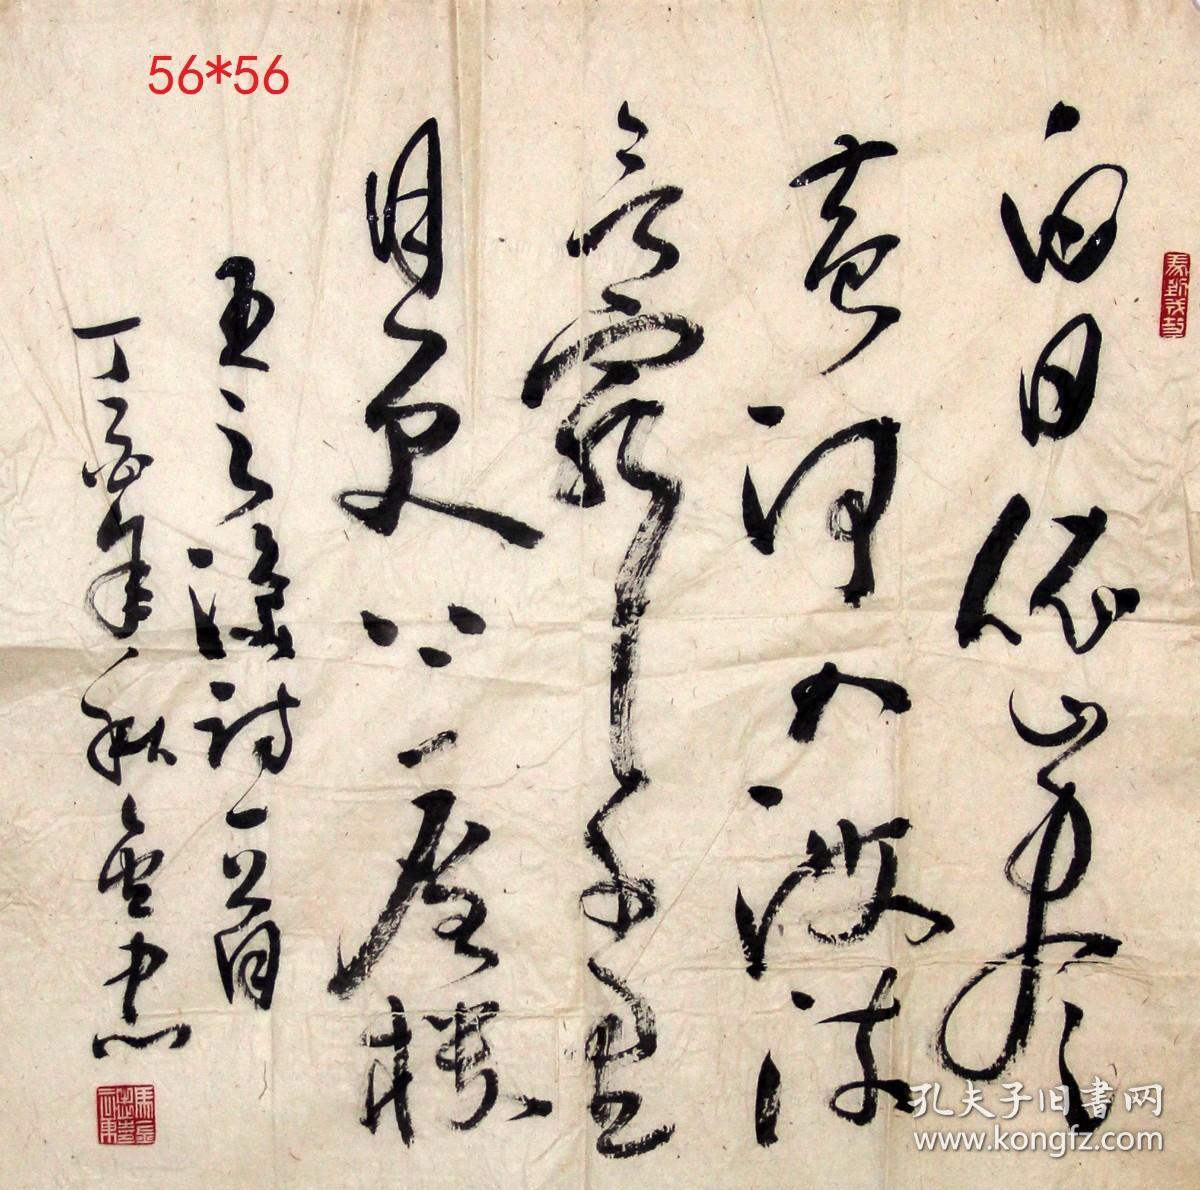 56*56
白日依山尽
黄河入海流
欲穷千里
目更上一层楼
王之涣诗一首
丁酉年秋金忠
孔夫子旧书网
www.kongfz.com